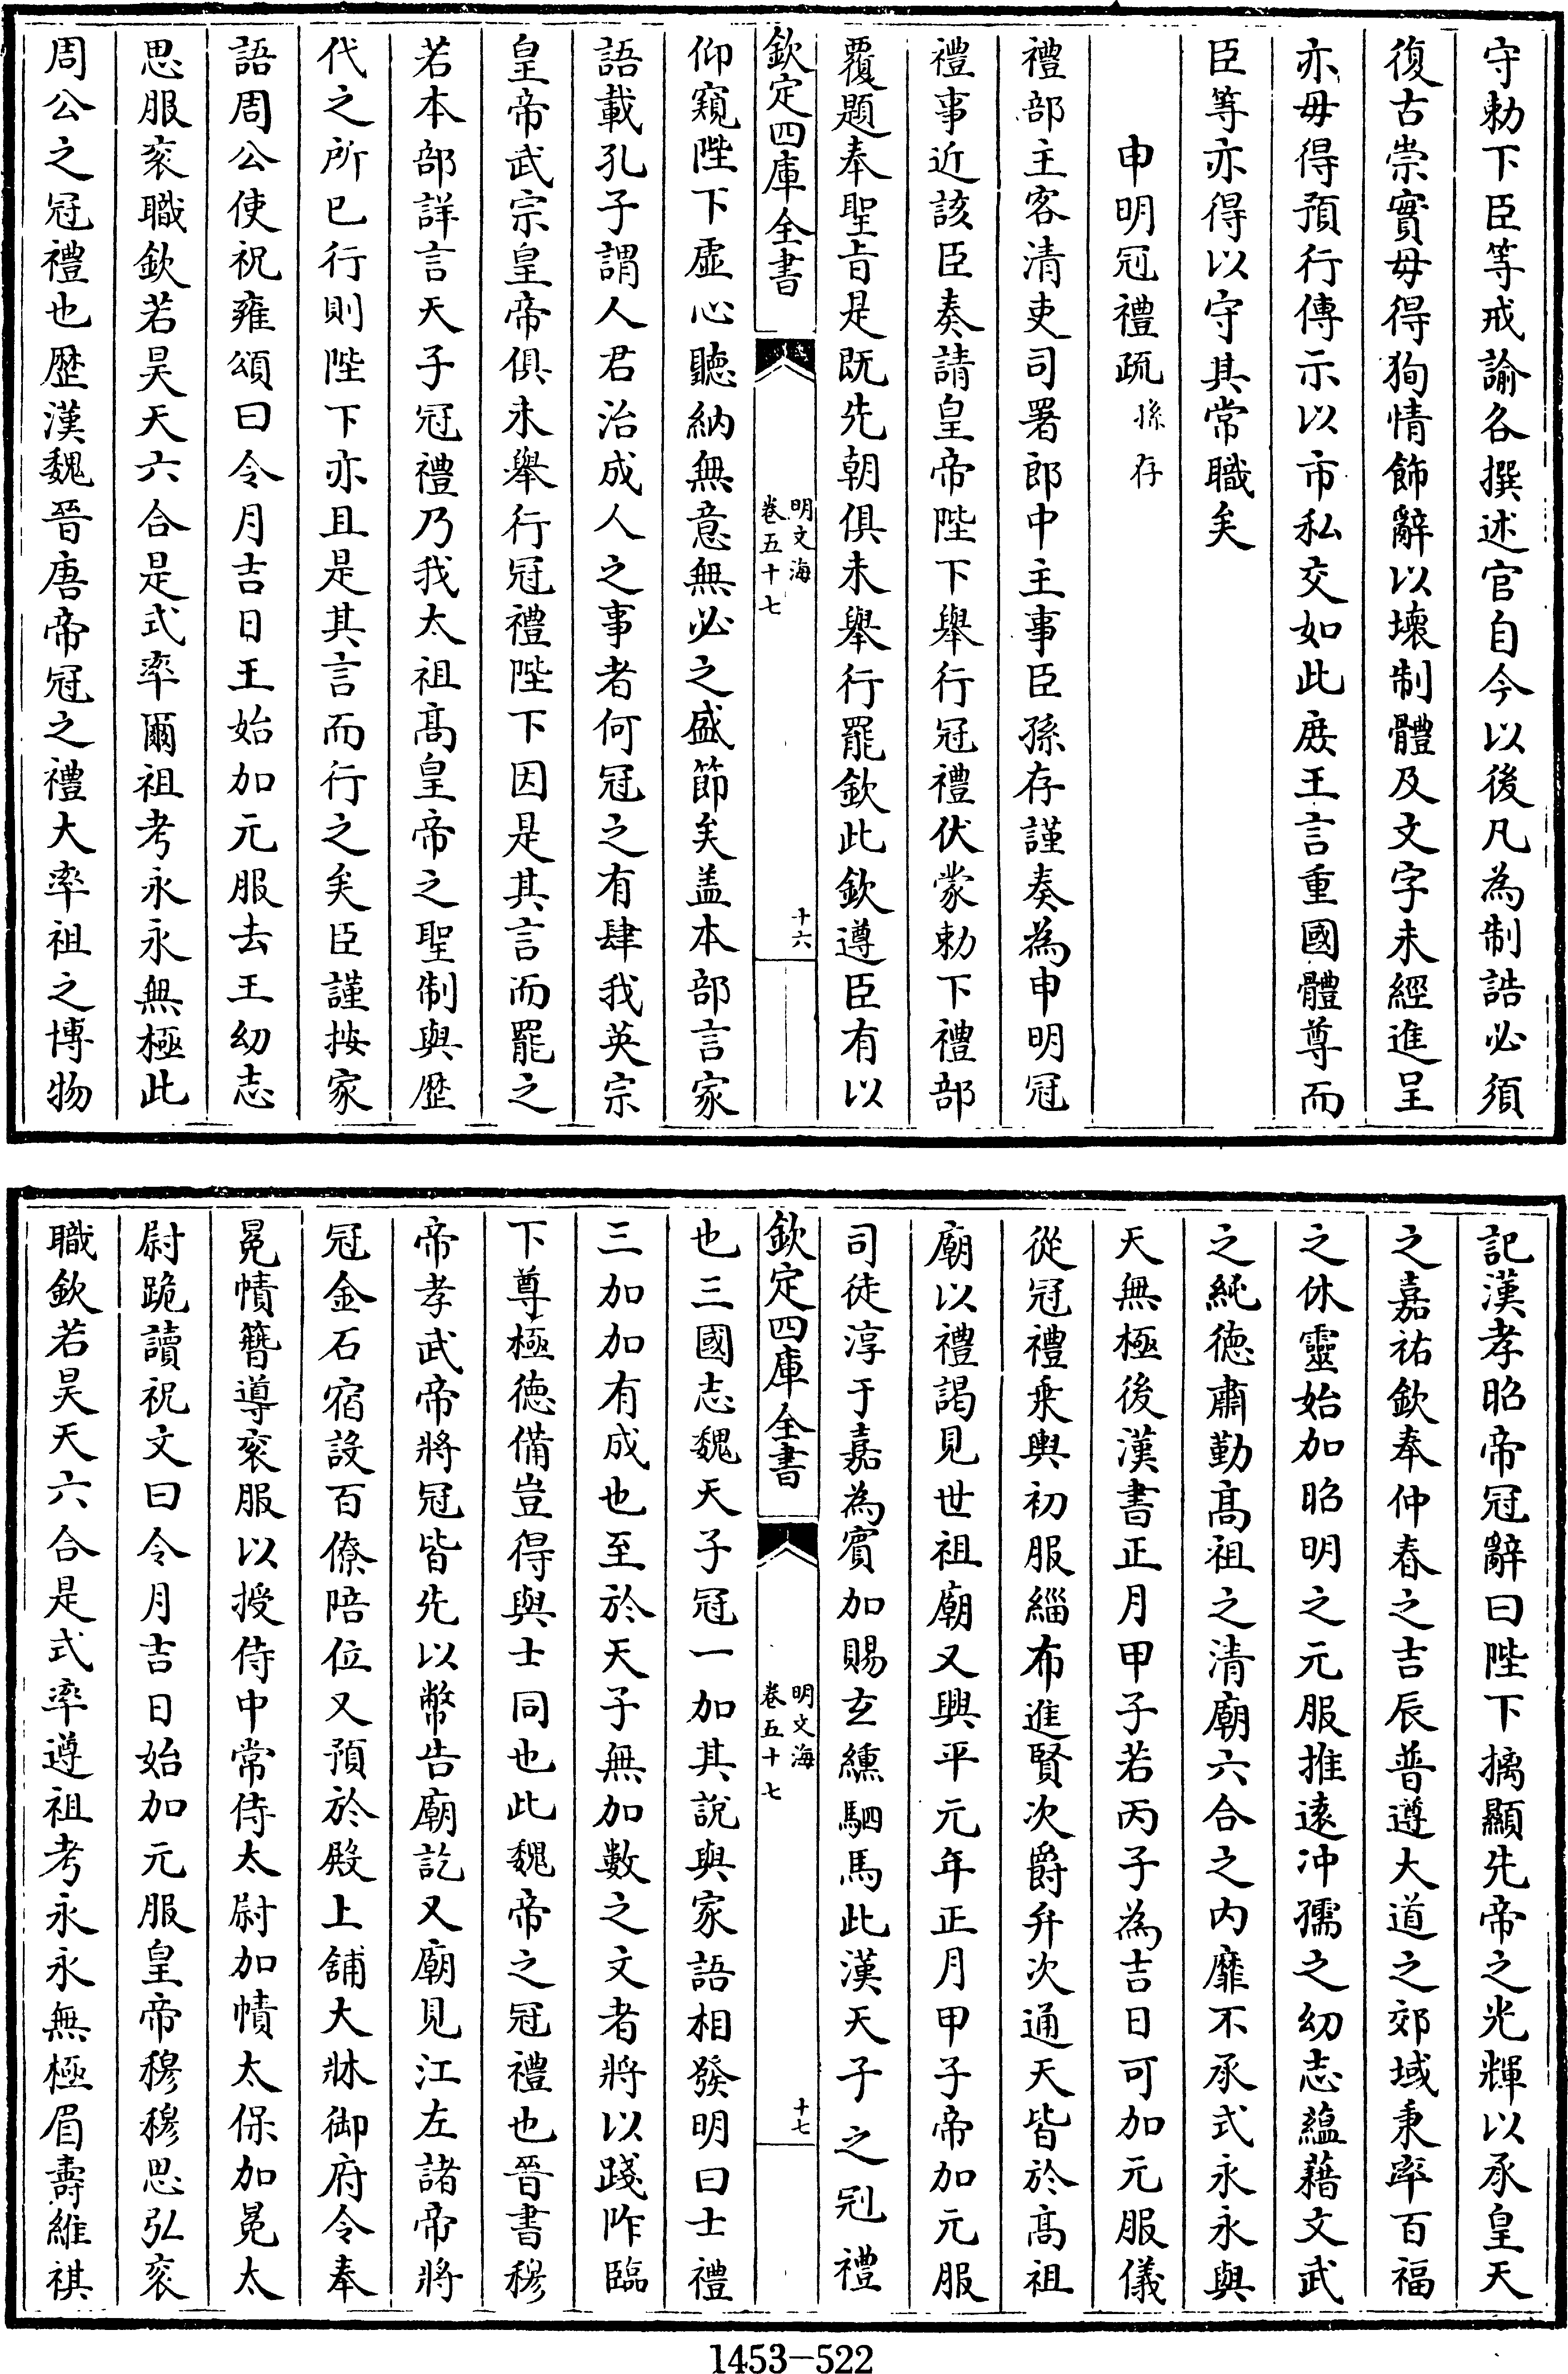 守勅下臣等戒諭各撰述官自今以後凡為制誥必須
復古崇實毋得狥情飾辭以壞制體及文字未經進呈
亦毋得預行傳示以市私交如此庻王言重國體尊而
臣等亦得以守其常職矣
申明冠禮疏 孫存
禮部主客清吏司署郎中主事臣孫存謹奏為申明冠
禮事近該臣奏請皇帝陛下舉行冠禮伏蒙勅下禮部
覆題奉聖旨是既先朝俱未舉行罷欽此欽遵臣有以
欽定四庫全書
明文海
卷五十七
十六
仰窺陛下虛心聽納無意無必之盛節矣盖本部言家
語載孔子謂人君治成人之事者何冠之有肆我英宗
皇帝武宗皇帝俱未舉行冠禮陛下因是其言而罷之
若本部詳言天子冠禮乃我太祖髙皇帝之聖制與歴
代之所已行則陛下亦且是其言而行之矣臣謹按家
語周公使祝雍頌曰令月吉日王始加元服去王幼志
思服衮職欽若昊天六合是式率爾祖考永永無極此
周公之冠禮也歴漢魏晉唐帝冠之禮大率祖之博物
記漢孝昭帝冠辭曰陛下摛顯先帝之光輝以承皇天
之嘉祐欽奉仲春之吉辰普遵大道之郊域秉率百福
之休靈始加昭明之元服推逺冲孺之幼志蘊藉文武
之純徳肅勤髙祖之清廟六合之内靡不承式永永與
天無極後漢書正月甲子若丙子為吉日可加元服儀
從冠禮乗輿初服緇布進賢次爵弁次通天皆於髙祖
廟以禮謁見世祖廟又興平元年正月甲子帝加元服
司徒淳于嘉為賔加賜玄纁駟馬此漢天子之冠禮
欽定四庫全書
明文海
卷五十七
十七
也三國志魏天子冠一加其説與家語相發明曰士禮
三加加有成也至於天子無加數之文者將以踐阼臨
下尊極徳備豈得與士同也此魏帝之冠禮也晉書穆
帝孝武帝將冠皆先以幣告廟訖又廟見江左諸帝將
冠金石宿設百僚陪位又預於殿上舗大牀御府令奉
冕幘簪導衮服以授侍中常侍太尉加幘太保加冕太
尉跪讀祝文曰令月吉日始加元服皇帝穆穆思弘衮
職欽若昊天六合是式率遵祖考永永無極眉壽維祺
1453-522